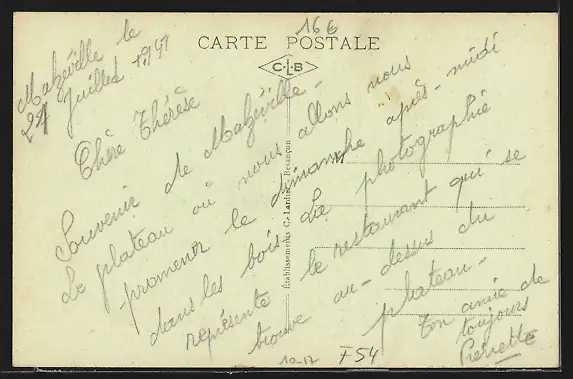 16€
CARTE POSTALE
C.L.B
Maxéville le
21 Juillet 1941
Chère Thérèse
Souvenir de Maxéville -
Le plateau où nous allons nous
promener le dimanche après-midi
dans les bois. La photographie
représente le restaurant qui se
trouve au-dessus du
plateau -
Ton amie de
toujours
Pierrette
Établissements C. Lardier, Besançon
10-17
F54